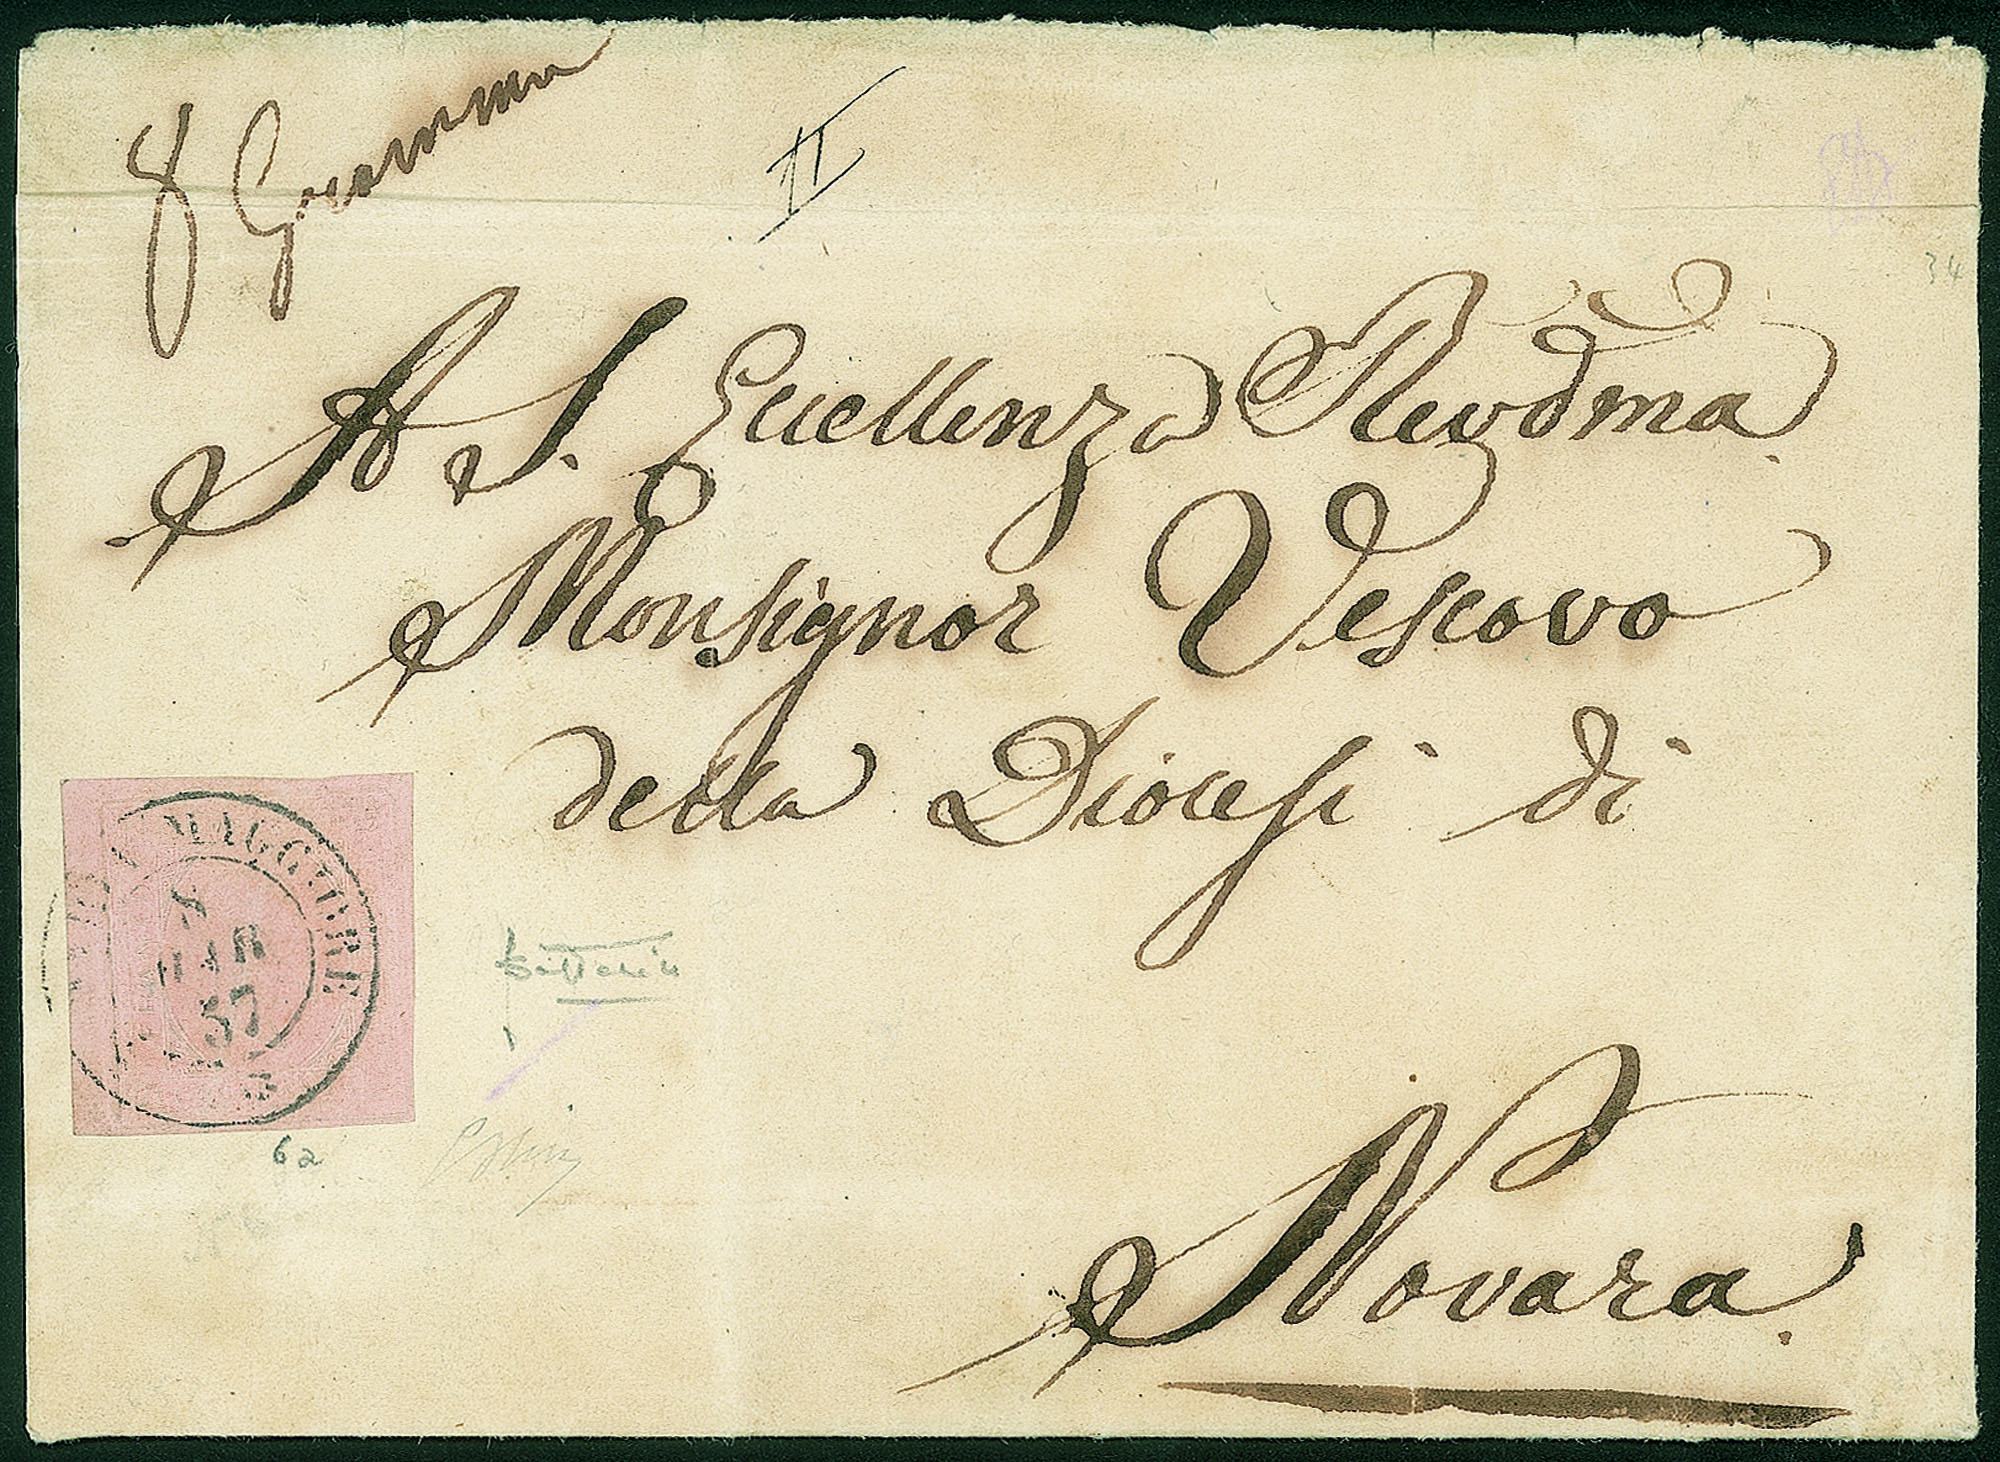 8 Grammi
II
34
A S. Eccellenza Revd̄ma
Monsignor Vescovo
della Diocesi di
Novara.
MAGGIORE
8
MAR
57
62